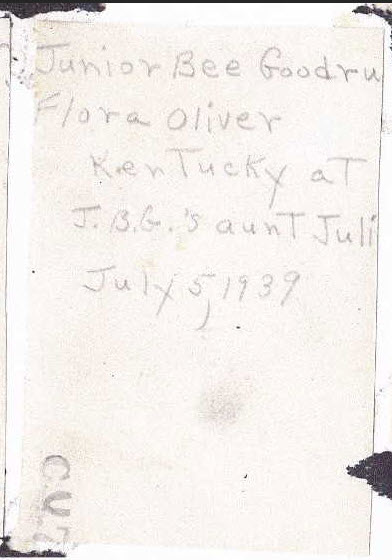 Junior Bee Goodru
Flora Oliver
Kentucky at
J.B.G.'s aunt Juli
July 5, 1939